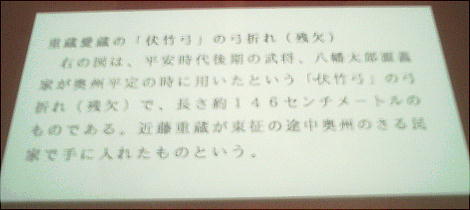 重蔵愛蔵の「伏竹弓」の弓折れ（残欠）
右の図は、平安時代後期の武将、八幡太郎源義
家が奥州平定の時に用いたという「伏竹弓」の弓
折れ（残欠）で、長さ約１４６センチメートルの
ものである。近藤重蔵が東征の途中奥州のさる民
家で手に入れたものという。